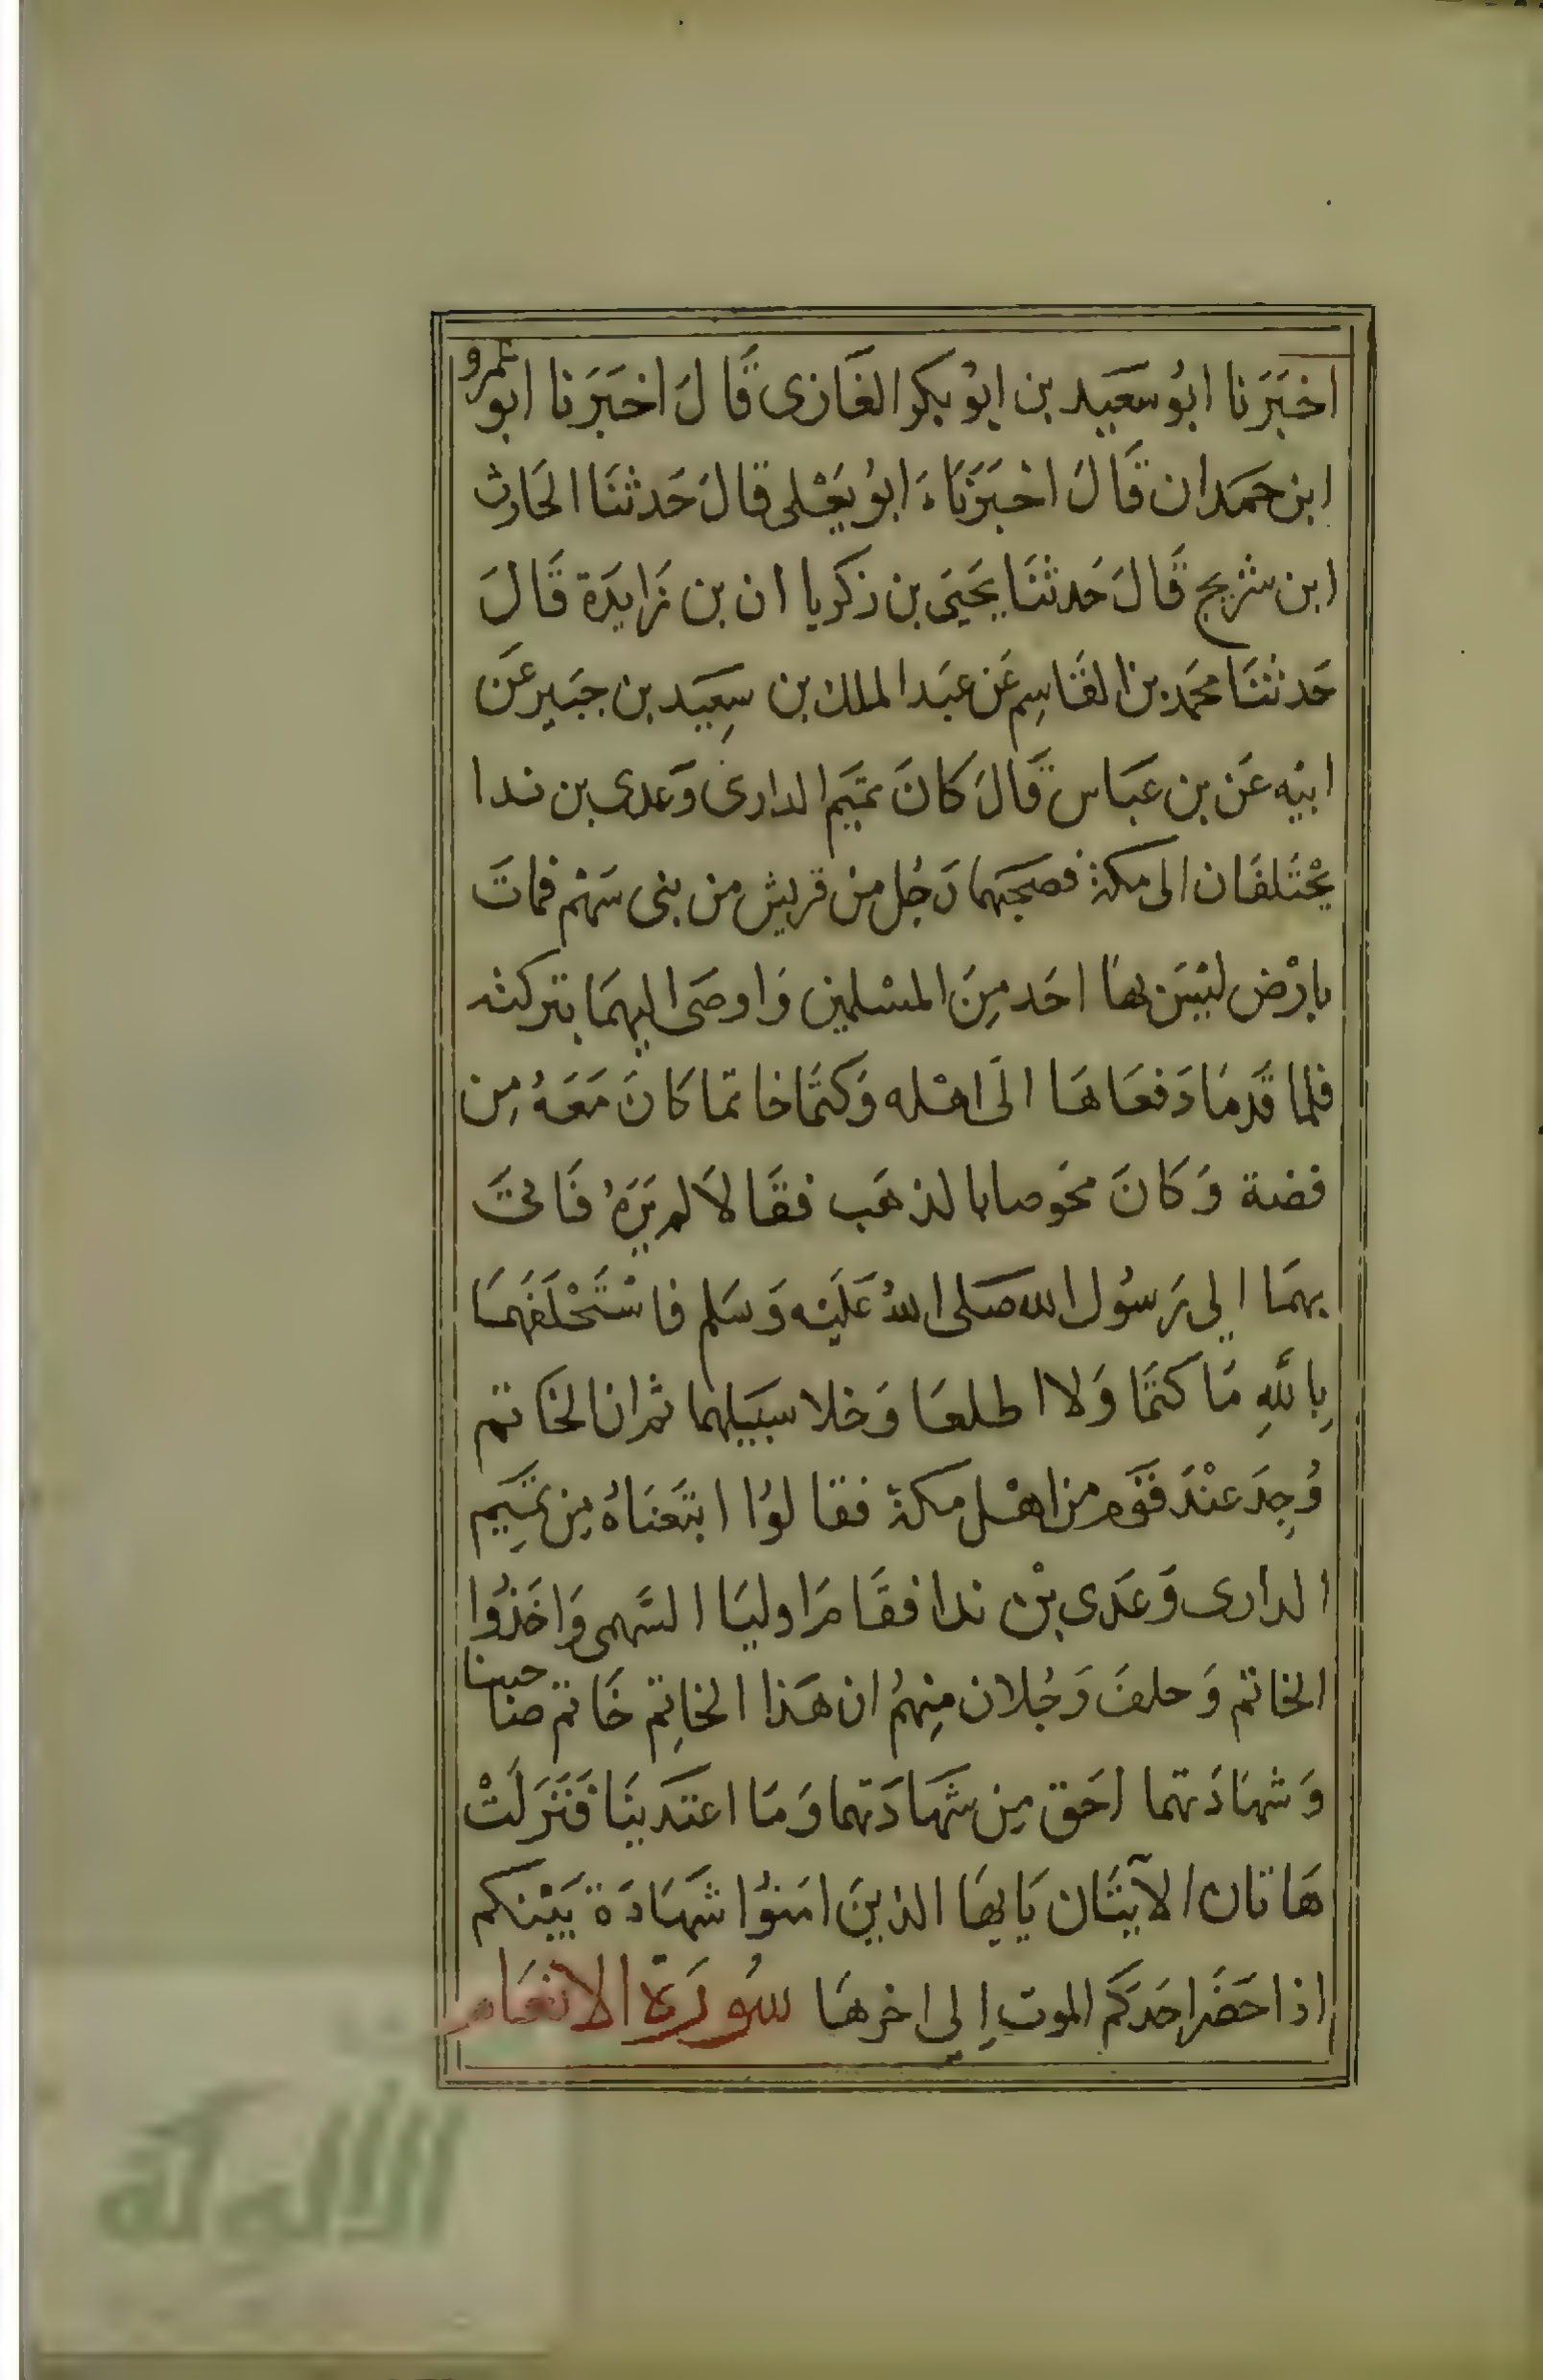 اخبَرَنا ابُو سَعَيد بن ابُو بكر الغَازى قَالَ اخبَرَنا ابو عمرو
ابن حمَدان قَالَ اخبَرَنَاءَ ابوُ يَعْلى قالَ حَدثنَا الحَارث
ابن شريح قَالَ حَدثنَا يحَيَى بن زكريا ان بن زَايدَة قَالَ
حَدثنَا محمَد بن القَاسِم عَن عبَد الملك بن سِعَيَد بن جبَير عَن
ابيْه عَن بن عَبَاس قَالَ كانَ تميَم الدارىَ وَعدى بن ندا
يخْتَلفَان الى مكة فصحبهما رَجُل من قريش من بنى سَهْم فماتَ
بارْض ليْسَ بهَا احَد مِنَ المسْلمين وَاوصَى اليهمَا بتركته
فلما قَدمَا دَفعَاهَا الَى اهْله وَكتمَا خاتما كانَ مَعَهُ مِن
فضة وَكانَ مخوصا بالذهَب فقَالاَ لم نرَهُ فَاتىَ
بهمَا الي رَسوُل الله صَلى اللهُ عَليْه وَسَلم فاسْتَحْلَفهمَا
بِاللَّهِ مَا كتمَا وَلا اطلعَا وَخلا سبَيلهما ثم ان الخَاتم
وُجِدَ عنْدَ قَوم من اهْل مكة فقالوُا ابتَعنَاهُ مِن تمَيِم
الدارى وَعَدى بْن ندا فقَامَ اوليَا السَّهمى وَاخَذوُا
الخاتم وَحلفَ رَجُلان مِنهمُ ان هَذا الخاتِم خَاتم صَاحبنا
وَشهَادَتهما احَق مِن شَهَادَتهما وَمَا اعتدَينَا فَنَزلَتْ
هَاتان الآيتَان يَايهَا الذينَ امَنوُا شَهَادَة بَيْنكم
اذا حَضَر احَدَكم الموت الي اخرهَا سوُرَة الانعَام
الألوكة